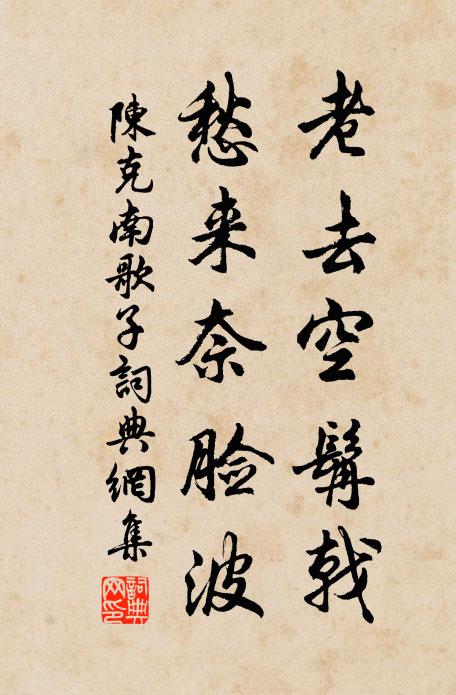 老去空髯戟
愁来奈脸波
陳克南歌子詞典網集
詞典网印